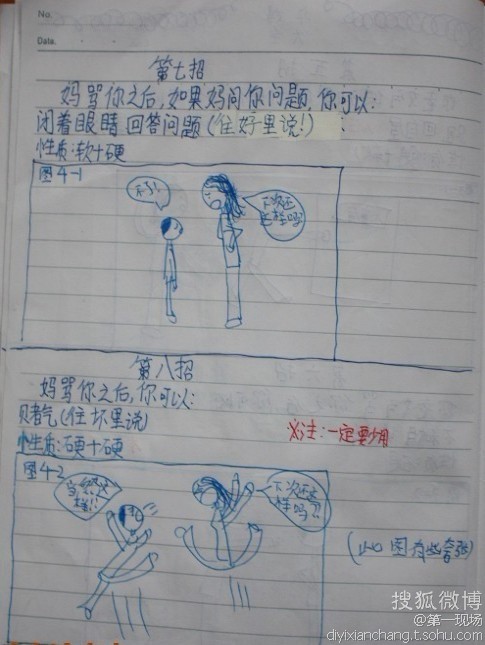 No.
Date.
第七招
妈骂你之后,如果妈问你问题,你可以:
闭着眼睛回答问题(住好里说!)
性质:软+硬
图4-1
不了!
下次还这样吗
第八招
妈骂你之后,你可以:
赌气(住坏里说)
※注:一定要少用
性质:硬+硬
图4-2
当然这样!!
下次还这样吗?!
(此图有些夸张)
搜狐微博
@第一现场
diyixianchang.t.sohu.com